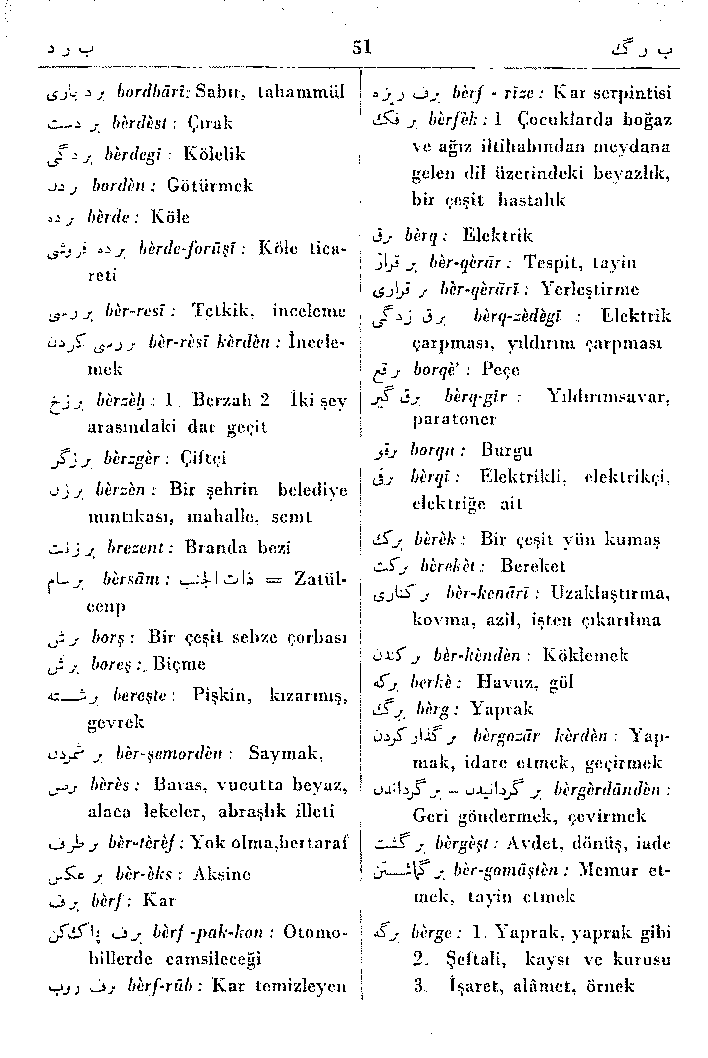 ب ر د
51
ب ر گ
بردباری bordbārī: Sabır, tahammül
بردست bèrdèst : Çırak
بردگی bèrdegī : Kölelik
بردن bordèn : Götürmek
برده bèrde : Köle
برده فروشی bèrde-forūşī : Köle tica-
reti
بررسی bèr-resī : Tetkik, inceleme
بررسی کردن bèr-rèsī kèrdèn : İncele-
mek
برزخ bèrzèḫ : 1. Berzah 2 İki şey
arasındaki dar geçit
برزگر bèrzgèr : Çiftçi
برزن bèrzèn : Bir şehrin belediye
mıntıkası, mahalle, semt
برزنت brezent : Branda bezi
برسام bèrsām : ذات الجنب = Zatül-
cenp
برش borş : Bir çeşit sebze çorbası
برش boreş :. Biçme
برشته bereşte : Pişkin, kızarmış,
gevrek
برشمردن bèr-şemordèn : Saymak,
برص bèrès : Baras, vucutta beyaz,
alaca lekeler, abraşlık illeti
برطرف bèr-tèrèf : Yok olma,bertaraf
برعکس bèr-èks : Aksine
برف bèrf : Kar
برف پاک‌کن bèrf -pak-kon : Otomo-
billerde camsileceği
برف روب bèrf-rūb : Kar temizleyen
برف ریزه bèrf - rīze : Kar serpintisi
برفک bèrfèk : 1 Çocuklarda boğaz
ve ağız iltihabından meydana
gelen dil üzerindeki beyazlık,
bir çeşit hastalık
برق bèrq : Elektrik
برقرار bèr-qèrār : Tespit, tayin
برقراری bèr-qèrārī : Yerleştirme
برق زدگی bèrq-zèdègī : Elektrik
çarpması, yıldırım çarpması
برقع borqè' : Peçe
برق گیر bèrq-gīr : Yıldırımsavar,
paratoner
برقو borqu : Burgu
برقی bèrqī : Elektrikli, elektrikçi,
elektriğe ait
برک bèrèk : Bir çeşit yün kumaş
برکت bèrekèt : Bereket
برکناری bèr-kenārī : Uzaklaştırma,
kovma, azil, işten çıkarılma
برکندن bèr-kèndèn : Köklemek
برکه berkè : Havuz, göl
برگ bèrg : Yaprak
برگذار کردن bèrgozār kèrdèn : Yap-
mak, idare etmek, geçirmek
برگردانیدن - برگرداندن bèrgèrdāndèn :
Geri göndermek, çevirmek
برگشت bèrgèşt : Avdet, dönüş, iade
برگماشتن bèr-gomāştèn : Memur et-
mek, tayin etmek
برگه bèrge : 1. Yaprak, yaprak gibi
2. Şeftali, kaysı ve kurusu
3. İşaret, alâmet, örnek